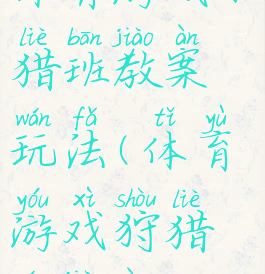 liè bān jiào àn
猎班教案
wán fǎ tǐ yù
玩法(体育
yóu xì shòu liè
游戏狩猎